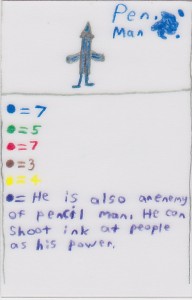 Pen.
Man
= 7
= 5
= 7
= 3
= 4
= He is also an enemy
of pencil man. He can
shoot ink at people
as his power.